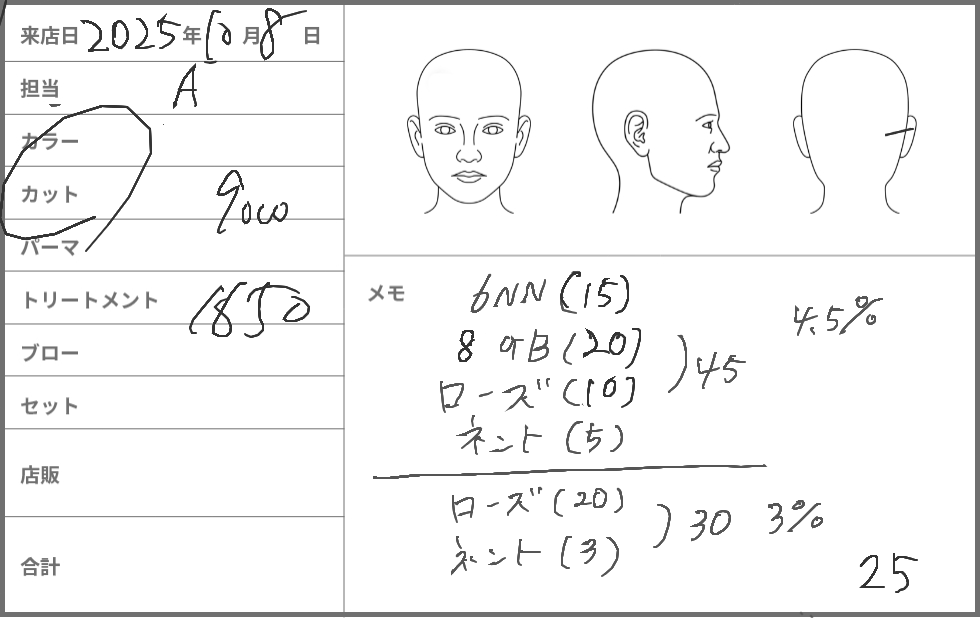 来店日 2025年 10月8日
担当 A
カラー
カット 9000
パーマ
トリートメント 1850
ブロー
セット
店販
合計
メモ
6NN (15)
4.5%
(20)
ローズ (10)
) 45
(5)
ローズ (20)
) 30 3%
(3)
25